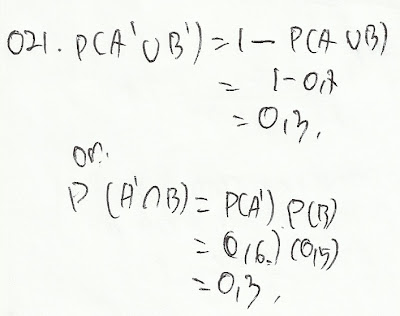 021. P(A'∪B') = 1 - P(A∪B)
= 1-0,7
= 0,3.
or.
P (A'∩B) = P(A') P(B)
= 0,6) (0,5)
= 0,3.